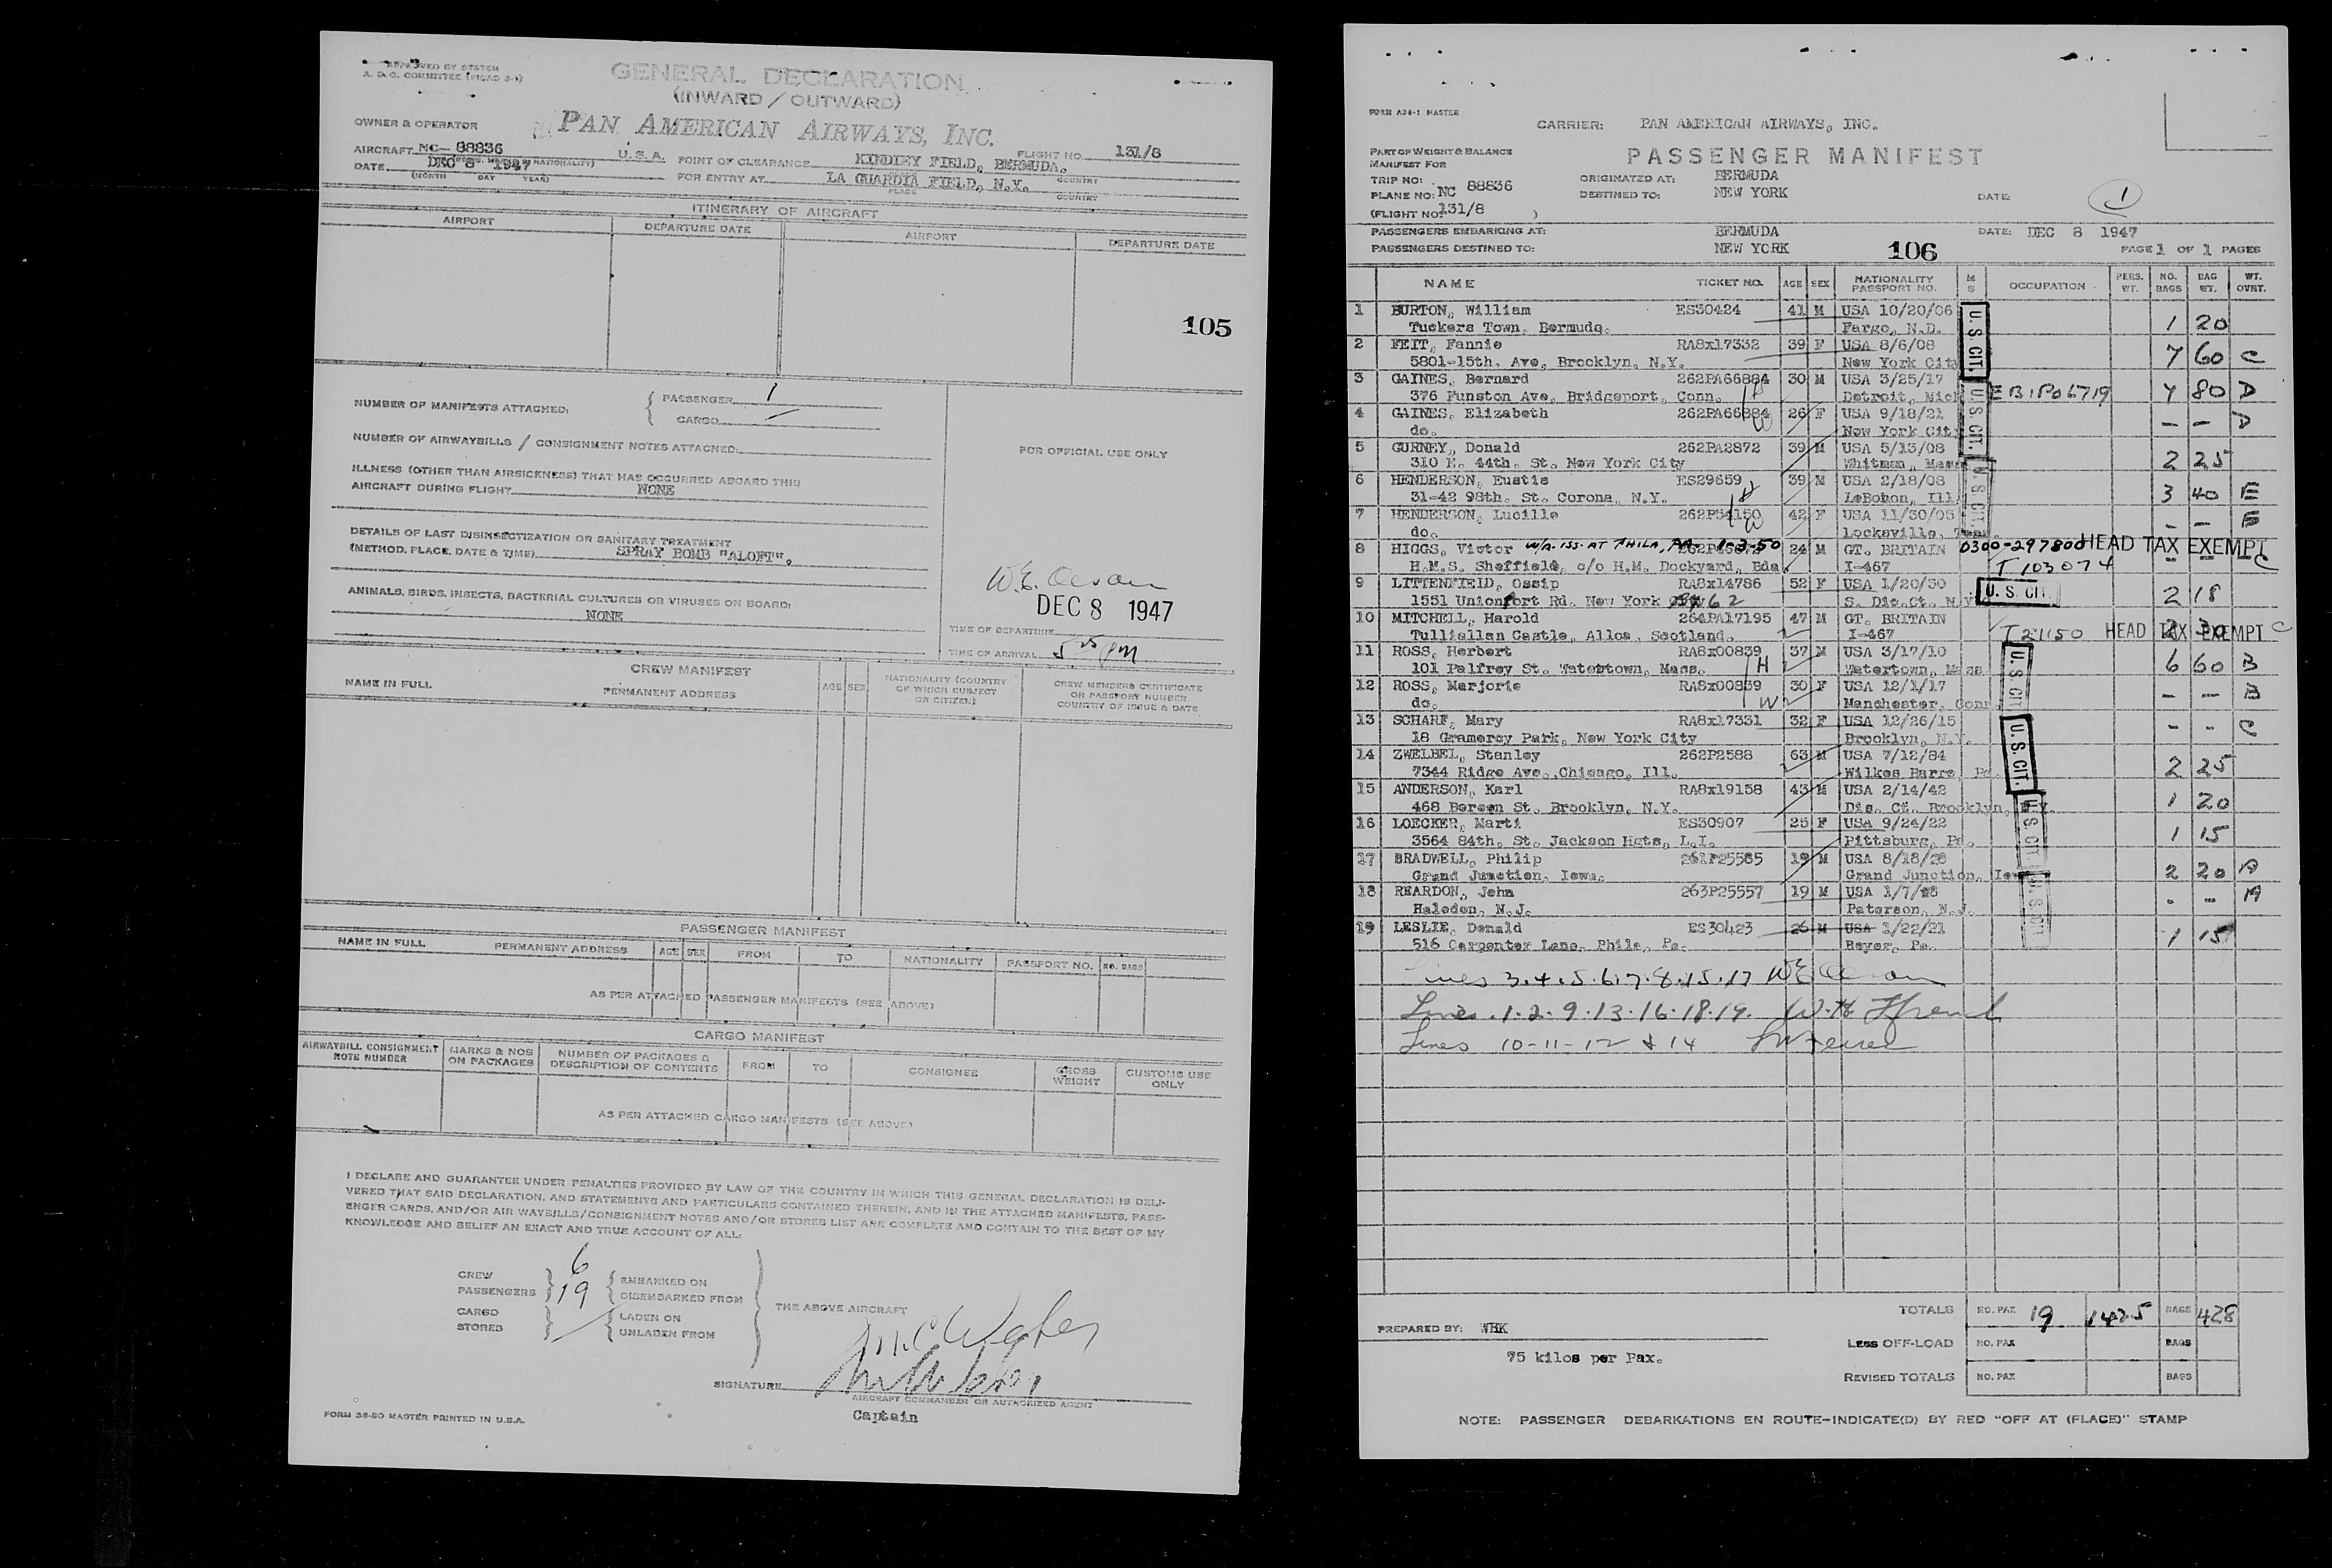 APPROVED BY SYSTEM
A. D. C. COMMITTEE (PICAO 3-1)
GENERAL DECLARATION
(INWARD / OUTWARD)
OWNER & OPERATOR PAN AMERICAN AIRWAYS, INC.
AIRCRAFT NC- 88836 U.S.A. POINT OF CLEARANCE KINDLEY FIELD, BERMUDA. FLIGHT NO. 131/8
DATE DEC 8 1947 FOR ENTRY AT LA GUARDIA FIELD, N.Y. COUNTRY
(MONTH DAY YEAR) PLACE COUNTRY
ITINERARY OF AIRCRAFT
AIRPORT DEPARTURE DATE AIRPORT DEPARTURE DATE
105
NUMBER OF MANIFESTS ATTACHED: PASSENGER 1
CARGO —
NUMBER OF AIRWAYBILLS / CONSIGNMENT NOTES ATTACHED:
FOR OFFICIAL USE ONLY
ILLNESS (OTHER THAN AIRSICKNESS) THAT HAS OCCURRED ABOARD THIS
AIRCRAFT DURING FLIGHT NONE
DETAILS OF LAST DISINSECTIZATION OR SANITARY TREATMENT
(METHOD, PLACE, DATE & TIME) SPRAY BOMB "ALOFT".
ANIMALS, BIRDS, INSECTS, BACTERIAL CULTURES OR VIRUSES ON BOARD:
NONE
DEC 8 1947
TIME OF DEPARTURE
TIME OF ARRIVAL 5 25 PM
CREW MANIFEST
NAME IN FULL PERMANENT ADDRESS AGE SEX NATIONALITY (COUNTRY OF WHICH SUBJECT OR CITIZEN) CREW MEMBERS CERTIFICATE OR PASSPORT NUMBER COUNTRY OF ISSUE & DATE
PASSENGER MANIFEST
NAME IN FULL PERMANENT ADDRESS AGE SEX FROM TO NATIONALITY PASSPORT NO. NO. BAGS
AS PER ATTACHED PASSENGER MANIFESTS (SEE ABOVE)
CARGO MANIFEST
AIRWAYBILL CONSIGNMENT NOTE NUMBER MARKS & NOS ON PACKAGES NUMBER OF PACKAGES & DESCRIPTION OF CONTENTS FROM TO CONSIGNEE GROSS WEIGHT CUSTOMS USE ONLY
AS PER ATTACHED CARGO MANIFESTS (SEE ABOVE)
I DECLARE AND GUARANTEE UNDER PENALTIES PROVIDED BY LAW OF THE COUNTRY IN WHICH THIS GENERAL DECLARATION IS DELI-
VERED THAT SAID DECLARATION, AND STATEMENTS AND PARTICULARS CONTAINED THEREIN, AND IN THE ATTACHED MANIFESTS, PASS-
ENGER CARDS, AND/OR AIR WAYBILLS/CONSIGNMENT NOTES AND/OR STORES LIST ARE COMPLETE AND CONTAIN TO THE BEST OF MY
KNOWLEDGE AND BELIEF AN EXACT AND TRUE ACCOUNT OF ALL:
CREW 6 EMBARKED ON
PASSENGERS 19 DISEMBARKED FROM
THE ABOVE AIRCRAFT
CARGO LADEN ON
STORES UNLADEN FROM
SIGNATURE
AIRCRAFT COMMANDER OR AUTHORIZED AGENT
Captain
FORM 35-90 MASTER PRINTED IN U.S.A.
FORM A36-1 MASTER
CARRIER: PAN AMERICAN AIRWAYS, INC.
PART OF WEIGHT & BALANCE
MANIFEST FOR
PASSENGER MANIFEST
TRIP NO: ORIGINATED AT: BERMUDA
PLANE NO: NC 88836 DESTINED TO: NEW YORK DATE: 1
(FLIGHT NO: 131/8 )
PASSENGERS EMBARKING AT: BERMUDA DATE: DEC 8 1947
PASSENGERS DESTINED TO: NEW YORK 106 PAGE 1 OF 1 PAGES
NAME TICKET NO. AGE SEX NATIONALITY PASSPORT NO. M S OCCUPATION PERS. WT. NO. BAGS BAG WT. WT. OVNT.
1 BURTON, William ES30424 41 M USA 10/20/06 U.S. CIT.
Tuckers Town, Bermuda. Fargo, N.D. 1 20
2 FEIT, Fannie RA8x17332 39 F USA 8/6/08
5801-15th. Ave, Brooklyn, N.Y. New York City 7 60 C
3 GAINES, Bernard 262PA66884 30 M USA 3/25/17 U.S. CIT.
376 Funston Ave, Bridgeport, Conn. H Detroit, Mich EB1P06719 4 80 D
4 GAINES, Elizabeth 262PA66884 26 F USA 9/18/21
do. W New York City - - D
5 GURNEY, Donald 262PA2872 39 M USA 5/13/08
310 E. 44th. St. New York City Whitman, Mass 2 25
6 HENDERSON, Eustis ES29659 39 M USA 2/18/08 U.S. CIT.
31-42 98th. St. Corona, N.Y. H LeBohon, Ill 3 40 E
7 HENDERSON, Lucille 262P54150 42 F USA 11/30/05
do. W Locksville, Tenn. - - E
8 HIGGS, Victor W/A. ISS. AT PHILA, PA. 1-3-50 24 M GT. BRITAIN 0300-297800 HEAD TAX EXEMPT
H.M.S. Sheffield, c/o H.M. Dockyard, Bda. I-467 T 103074 - - C
9 LITTENFIELD, Ossip RA8x14786 52 F USA 1/20/30 U. S. CIT.
1551 Unionport Rd. New York 62 S. Dis.Ct. N.Y. 2 18
10 MITCHELL, Harold 264PA17195 47 M GT. BRITAIN
Tulliallan Castle, Alloa, Scotland. I-467 T 21150 HEAD TAX EXEMPT 2 30 C
11 ROSS, Herbert RA8x00839 37 M USA 3/17/10 U.S. CIT.
101 Palfrey St. Watertown, Mass. H Watertown, Mass 6 60 B
12 ROSS, Marjorie RA8x00839 30 F USA 12/1/17
do. W Manchester, Conn. - - B
13 SCHARF, Mary RA8x17331 32 F USA 12/26/15 U.S. CIT.
18 Gramercy Park, New York City Brooklyn, N.Y. - - C
14 ZWELBEL, Stanley 262P2588 63 M USA 7/12/84
7344 Ridge Ave., Chicago, Ill. Wilkes Barre, Pa. 2 25
15 ANDERSON, Karl RA8x19158 43 M USA 2/14/42 U.S. CIT.
468 Bergen St. Brooklyn, N.Y. Dis. Ct. Brooklyn, N.Y. 1 20
16 LOECKER, Marti ES30907 25 F USA 9/24/22
3564 84th. St. Jackson Hgts, L.I. Pittsburg, Pa. 1 15
17 BRADWELL, Philip 261P25585 19 M USA 8/18/28 U.S. CIT.
Grand Junction, Iowa. Grand Junction, Iowa 2 20 A
18 REARDON, John 263P25557 19 M USA 1/7/28
Haledon, N.J. Paterson, N.J. - - A
19 LESLIE, Donald ES30423 26 M USA 1/22/21
516 Carpenter Lane, Phila, Pa. Beyer, Pa. 1 15
Lines 3.4.5.6.7.8.15.17
Lines 1-2-9-13-16-18-19.
Lines 10-11-12 & 14
TOTALS NO. PAX 19 1425 BAGS 428
PREPARED BY: WHK LESS OFF-LOAD NO. PAX BAGS
75 kilos per Pax.
REVISED TOTALS NO. PAX BAGS
NOTE: PASSENGER DEBARKATIONS EN ROUTE-INDICATE(D) BY RED "OFF AT (PLACE)" STAMP